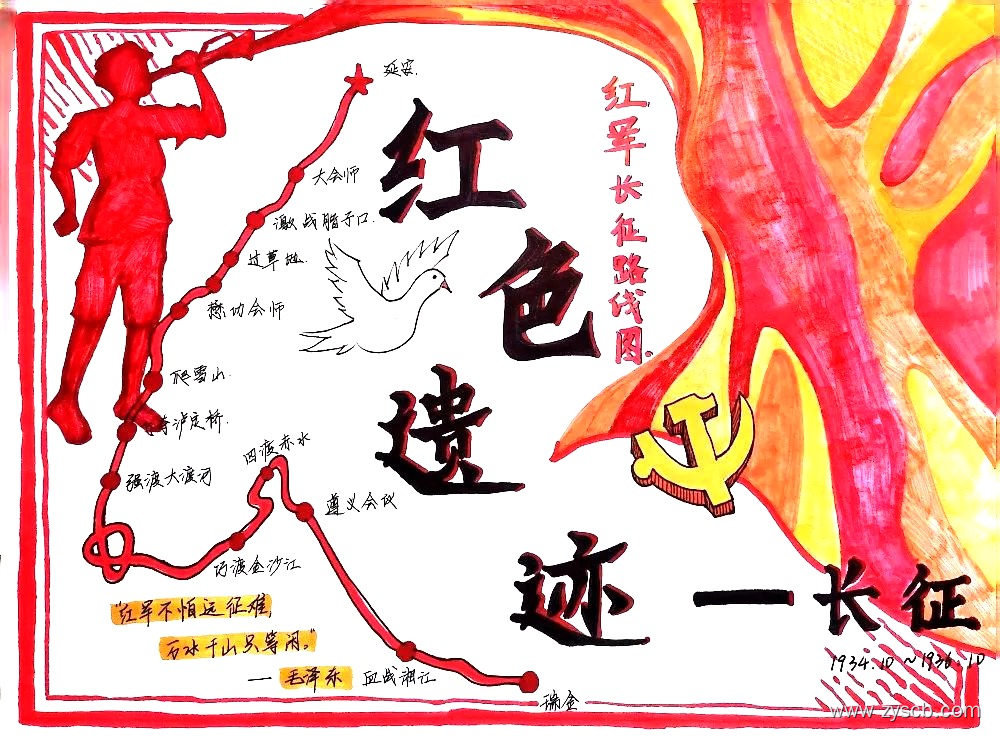 延安.
大会师
激战腊子口.
过草地.
懋功会师
爬雪山.
夺泸定桥.
强渡大渡河
四渡赤水
遵义会议
巧渡金沙江
血战湘江
瑞金
红色遗迹—长征
红军长征路线图.
1934.10~1936.10
"红军不怕远征难,
万水千山只等闲。"
— 毛泽东
www.zyscb.com